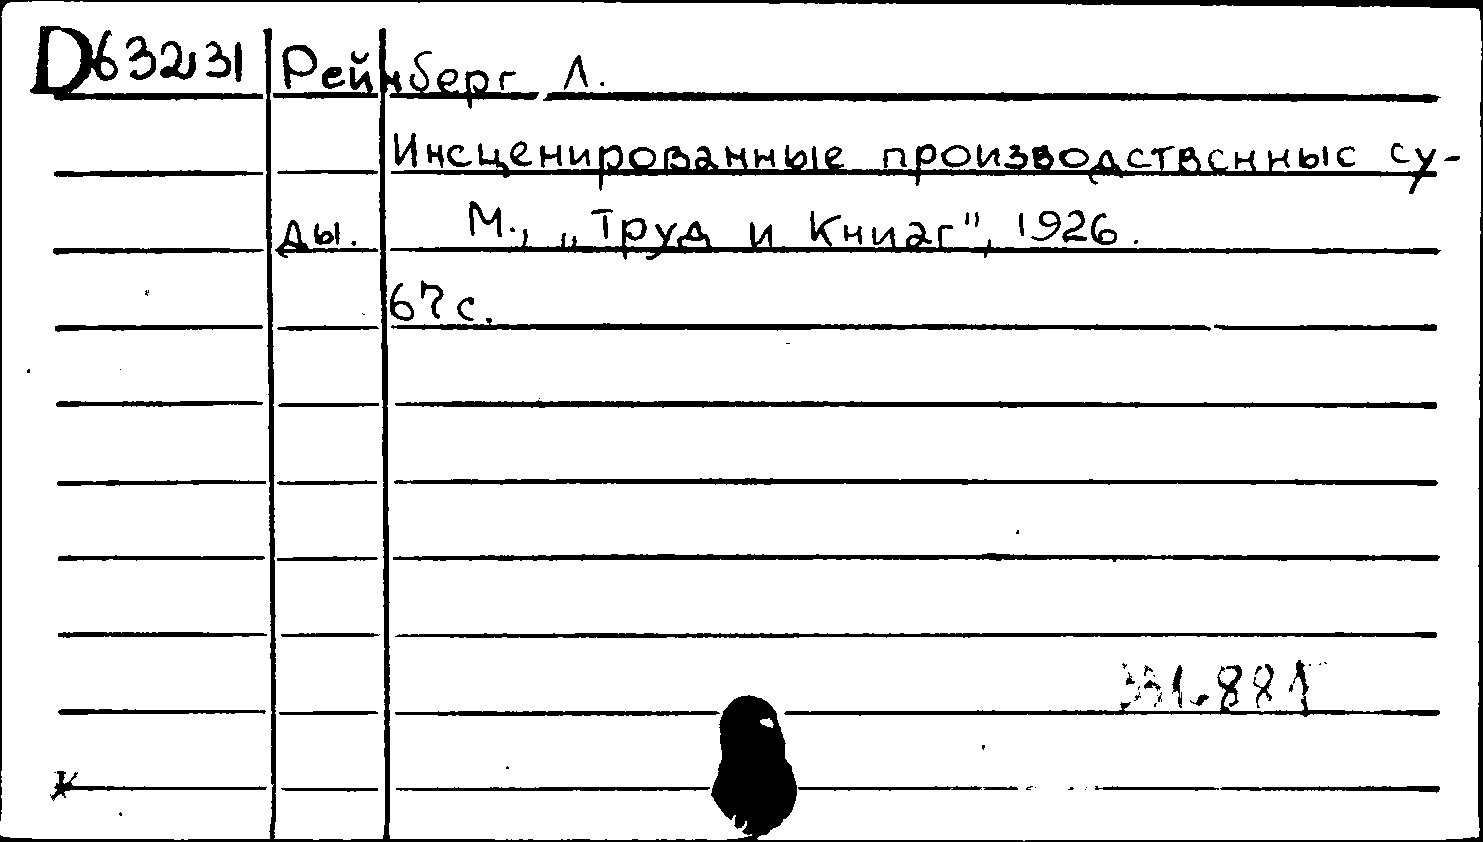 D63231 Рейнберг Л.
Инсценированные производственные су-
ды. М., „Труд и Книаг", 1926.
67 с.
331.881